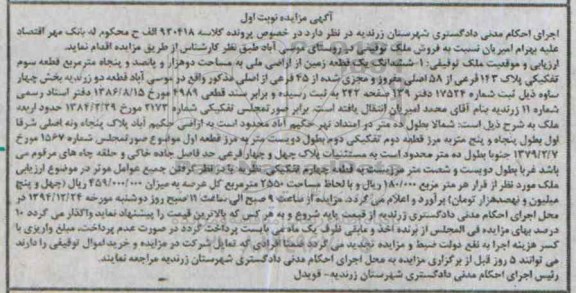 آگهی مزایده نوبت اول
اجرای احکام مدنی دادگستری شهرستان زرندیه در نظر دارد در خصوص پرونده کلاسه ۹۳۰۴۱۸ الف ح محکوم له بانک مهر اقتصاد
علیه بهرام امیریان نسبت به فروش ملک توقیفی در روستای موسی آباد طبق نظر کارشناس از طریق مزایده اقدام نماید.
ارزیابی و موقعیت ملک توقیفی : ۱-ششدانگ یک قطعه زمین از اراضی ملی به مساحت دوهزار و پانصد و پنجاه مترمربع قطعه سوم
تفکیکی پلاک ۱۴۳ فرعی از ۵۸ اصلی مفروز و مجزی شده از ۴۵ فرعی از اصلی مذکور واقع در موسی آباد قطعه دو زرندیه بخش چهار
ساوه ذیل ثبت شماره ۱۷۵۲۴ دفتر ۱۳۹ صفحه ۲۴۲ به ثبت رسیده و برابر سند قطعی ۴۹۸۹ مورخ ۱۳۸۶/۸/۱۵ دفتر اسناد رسمی
شماره ۱۱ زرندیه بنام آقای محمد امیریان انتقال یافته است. برابر صورتمجلس تفکیکی شماره ۲۱۷۳ مورخ ۱۳۸۴/۲/۲۹ حدود اربعه
ملک به شرح ذیل است: شمالا بطول ده متر در امتداد نهر حکیم آباد محدود است به اراضی حکیم آباد پلاک پنجاه ونه اصلی شرقا
بطول پنجاه و پنج متربه مرز قطعه دوم تفکیکی دوم بطول دویست متر به مرز قطعه اول موضوع صورتمجلس شماره ۱۵۶۷ مورخ
۱۳۷۹/۲/۷ جنوبا بطول ده متر محدود است به مستثنیات پلاک چهل و چهار فرعی حد فاصل جاده خاکی و حلقه چاه های مرقوم می
باشد غربا بطول دویست و شصت متر مرزیست به قطعه چهارم تفکیکی نظریه با در نظر گرفتن جمیع عوامل موثر در موضوع ارزیابی
ملک مورد نظر از قرار هر متر مربع ۱۸۰/۰۰۰ ریال و با لحاظ مساحت ۲۵۵۰ مترمربع کل عرصه به میزان ۴۵۹/۰۰۰/۰۰۰ ریال (چهل و پنج
میلیون و نهصدهزار تومان) برآورد و اعلام می گردد. مزایده از ساعت ۹ صبح الی ساعت ۱۱ صبح روز دوشنبه مورخه ۱۳۹۴/۱۲/۲۴ در
محل اجرای احکام مدنی دادگستری زرندیه از قیمت پایه شروع و به هر کس که بالاترین قیمت را پیشنهاد نماید واگذار می گردد ۱۰
درصد بهای مزایده فی المجلس از برنده اخذ و مابقی ظرف یک ماه می بایست پرداخت گردد در صورت عدم پرداخت، مبلغ واریزی با
کسر هزینه اجرا به نفع دولت ضبط و مزایده تجدید می گردد ضمنا افرادی که تمایل شرکت در مزایده و خریداموال توقیفی را دارند
می توانند ۵ روز قبل از برگزاری مزایده به محل اجرای احکام مدنی دادگستری شهرستان زرندیه مراجعه نمایند.
رئیس اجرای احکام مدنی دادگستری شهرستان زرندیه- قویدل